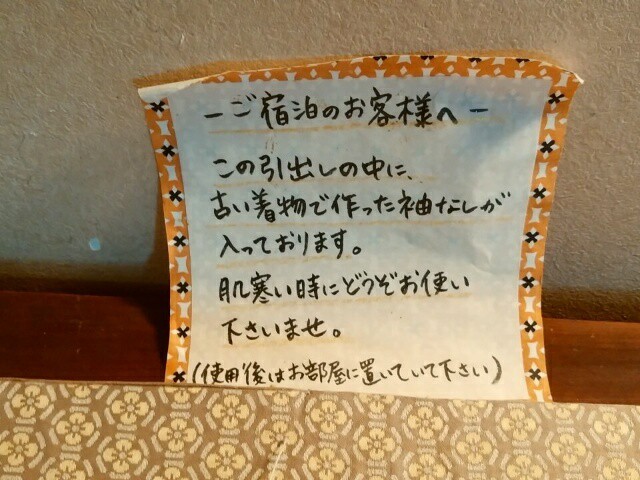 －ご宿泊のお客様へ－
この引出しの中に、
古い着物で作った袖なしが
入っております。
肌寒い時にどうぞお使い
下さいませ。
(使用後はお部屋に置いていて下さい)